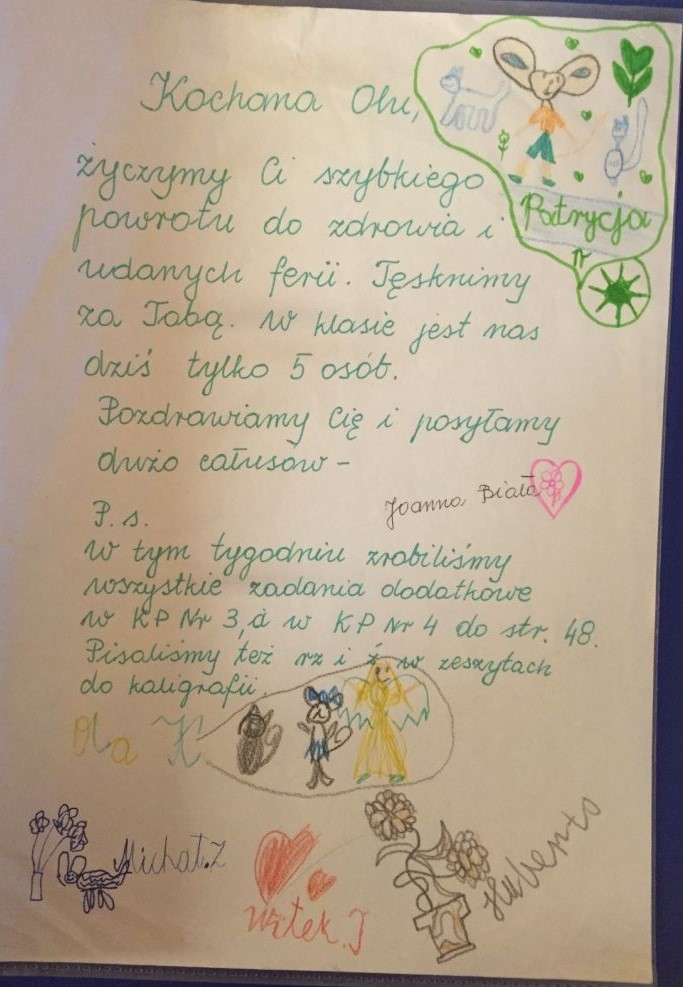 Kochana Olu,
życzymy Ci szybkiego
powrotu do zdrowia i
udanych ferii. Tęsknimy
za Tobą. W klasie jest nas
dziś tylko 5 osób.
Pozdrawiamy Cię i posyłamy
dużo całusów –
Joanna Biała
P. s.
W tym tygodniu zrobiliśmy
wszystkie zadania dodatkowe
w KP Nr 3, a w KP Nr 4 do str. 48.
Pisaliśmy też rz i ż w zeszytach
do kaligrafii.
Patrycja
Ola K
Michał.Z
Witek.J